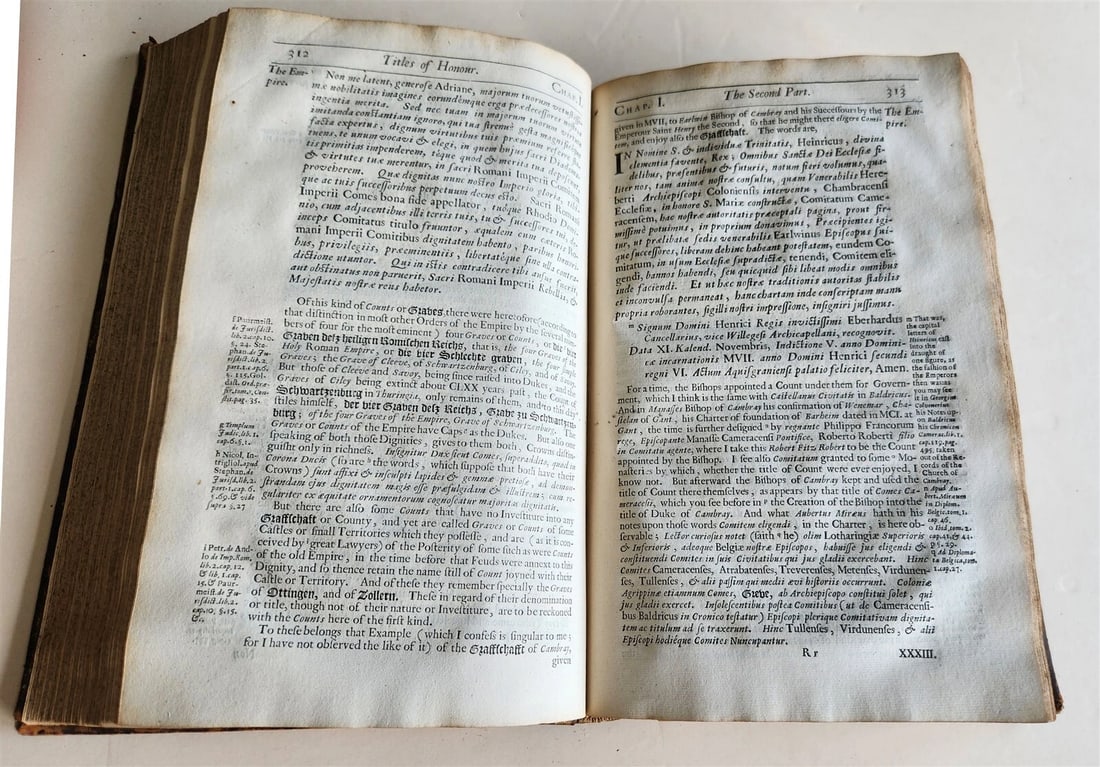 312
Titles of Honour.
CHAP. I.
The Em-
pire.
Non me latent, generose Adriane, majorum tuorum vetustissi-
mæ nobilitatis imagines eorundemque erga prædecessores
ingentia merita. Sed nec tuam in majorum tuorum
imitanda constantiam ignoro, qui tua strenue gesta
facta expertus, dignum virtutibus tuis præmium
tuens, te unum vocavi & elegi, in quem hujus sacri Diadematis
tis primitias impenderem, teque quod & merita tua
& virtutes tuæ merentur, in sacri Romani Imperii Comitem
proveherem. Quæ dignitas nunc nostro Imperio gloria, tibi-
que ac tuis successoribus perpetuum decus esto. Sacri Romani
Imperii Comes bona fide appellator, tuque Rhodia
nio, cum adjacentibus illi terris tuis, tu & successores tui, de-
inceps Comitatus titulo fruuntor, æqualem cum cæteris Ro-
mani Imperii Comitibus dignitatem habento, paribus honori-
bus, privilegiis, præeminentiis, libertateque sine ulla contra-
dictione utuntor. Qui in istis contradicere tibi ausus fuerit,
aut obstinatus non paruerit, Sacri Romani Imperii Rebellis, &
Majestatis nostræ reus habetor.
Of this kind of Counts or Graves, there were heretofore (according to
that distinction in most other Orders of the Empire by the several num-
bers of four for the most eminent) four Graves or Counts, or die vier
Graven desz heiligen Romischen Reichs, that is, the four Graves of the
Holy Roman Empire, or die vier Schlechte graven, the four simple
Graves; the Grave of Cleeve, of Schwartzenburg, of Ciley, and of Savoy.
But those of Cleeve and Savoy, being since raised into Dukes, and the
Graves of Ciley being extinct about CLXX years past, the Count of
Schwartzenburg in Thuringia, only remains of them, and to this day
stiles himself, der vier Graven desz Reichs, Grave zu Schwartzen-
burg; of the four Graves of the Empire, Grave of Schwartzenburg. The
Graves or Counts of the Empire have Caps as the Dukes. But also one
speaking of both those Dignities, gives to them both, Crowns distin-
guisht only in richness. Insigniuntur Duces sicut Comites, supraedita, quod in
Corona Ducis (so are the words, which suppose that both have their
Crowns) sunt affixi & insculpti lapides & gemmæ pretiosæ, ad demon-
strandam ejus dignitatem magis osse præfulgidam & illustrem; cum re-
gulariter ex equitate ornamentorum cognoscatur majoritas dignitatis.
But there are also some Counts that have no Investiture into any
Graffschaft or County, and yet are called Graves or Counts of some
Castles or small Territories which they possesse, and are (as it is con-
ceived by great Lawyers) of the Posterity of some such as were Counts
of the old Empire, in the time before that Feuds were annext to this
Dignity, and so thence retain the name still of Count joyned with their
Castle or Territory. And of these they remember specially the Graves
of Ottingen, and of Zollern. These in regard of their denomination
or title, though not of their nature or Investiture, are to be reckoned
with the Counts here of the first kind.
To these belongs that Example (which I confess is singular to me;
for I have not observed the like of it) of the Graffschafft of Cambray,
given
f Paurmeist.
de Jurisdict.
lib. 2. cap. 10.
§. 24. Ste-
phan. de Ju-
risdict. lib. 2.
g Templum
Judic. lib. 1.
cap. 6. §. 1.
h Nicol. In-
Stephan. de
Jurisd. lib. 2.
part. 1. cap. 6.
supra §. 27
i Petr. de And-
lo de Imp. Rom.
lib. 2. cap. 12.
& lib. 1. cap.
15. & Paur-
meist. de Ju-
risdict. lib. 2.
cap. 10. §. 15.
&c.
CHAP. I.
The Second Part.
313
The Em-
pire.
given in MVII, to Earlwin Bishop of Cambray and his Successours by the
Emperour Saint Henry the Second, so that he might there eligere Comi-
tem, and enjoy also the Graffschaft. The words are,
IN Nomine S. & individuæ Trinitatis, Heinricus, divina
clementia favente, Rex; Omnibus Sanctæ Dei Ecclesiæ fi-
delibus, præsentibus & futuris, notum fieri volumus, qua-
liter nos, tam animæ nostræ consultu, quam Venerabilis Here-
berti Archiepiscopi Coloniensis interventu, Chambracensi
Ecclesiæ, in honore S. Mariæ constructæ, Comitatum Came-
racensem, hac nostræ autoritatis præceptali pagina, prout fir-
missimè potuimus, in proprium donavimus, Præcipientes igi-
tur, ut prælibatæ sedis venerabilis Earlwinus Episcopus sui-
que successores, liberam dehinc habeant potestatem, eundem Co-
mitatum, in usum Ecclesiæ supradictæ, tenendi, Comitem eli-
gendi, bannos habendi, seu quicquid sibi libeat modis omnibus
inde faciendi. Et ut hæc nostræ traditionis autoritas stabilis
et inconvulsa permaneat, hanc chartam inde conscriptam manu
propria roborantes, sigilli nostri impressione, insigniri jussimus.
m Signum Domini Henrici Regis invictissimi Eberhardus
Cancellarius, vice Willegesi Archicapellani, recognovit.
Data XI. Kalend. Novembris, Indictione V. anno Domini-
cæ incarnationis MVII. anno Domini Henrici secundi
regni VI. Actum Aquisgraniensi palatio feliciter, Amen.
For a time, the Bishops appointed a Count under them for Govern-
ment, which I think is the same with Castellanus Civitatis in Baldricus.
And in Manasses Bishop of Cambray his confirmation of Wenemar, Cha-
stelan of Gant, his Charter of foundation of Barheim dated in MCI. at
Gant, the time is further designed by regnante Philippo Francorum
rege, Episcopante Manasse Cameracensi Pontifice, Roberto Roberti filio
in Comitatu agente, where I take this Robert Fitz Robert to be the Count
appointed by the Bishop. I see also Comitatum granted to some Mo-
nasteries by which, whether the title of Count were ever enjoyed, I
know not. But afterward the Bishops of Cambray kept and used the
title of Count there themselves, as appears by that title of Comes Ca-
meracesii, which you see before in the Creation of the Bishop into the
title of Duke of Cambray. And what Aubertus Miræus hath in his
notes upon those words Comitem eligendi, in the Charter, is here ob-
servable; Lector curiosus notet (saith he) olim Lotharingiæ Superioris
& Inferioris, adeoque Belgiæ nostræ Episcopos, habuisse jus eligendi &
constituendi Comites in suis Civitatibus qui jus gladii exercebant. Hinc
Comites Cameracenses, Atrabatenses, Treverenses, Metenses, Virdunen-
ses, Tullenses, & alii passim qui medii ævi historiis occurrunt. Coloniæ
Agrippinæ etiamnum Comes, Greve, ab Archiepiscopo constitui solet, qui
jus gladii exercet. Insolescentibus postea Comitibus (ut de Cameracensi-
bus Baldricus in Cronico testatur) Episcopi plerique Comitativam dignita-
tem ac titulum ad se traxerunt. Hinc Tullenses, Virdunenses, & alii
Episcopi hodiéque Comites Nuncupantur.
m That was,
the capital
letters of
Heinricus cast
into the
draught of
one figure, as
the fashion of
the Emperors
then was; as
you may see
it in Georgius
Colvenerius
his Notes up-
on Baldricus
his Chronicon
Camerac. lib. 1.
cap. 119. pag.
495. taken
out of the Re-
cords of the
Church of
Cambray.
n Apud Au-
bert. Miræum
in Diplom.
Belgic. tom. 1.
cap. 46.
o Ibid. tom. 2.
p §. 29.
q Ad Diploma-
ta Belgica, tom.
1. cap. 27.
R r
XXXIII.